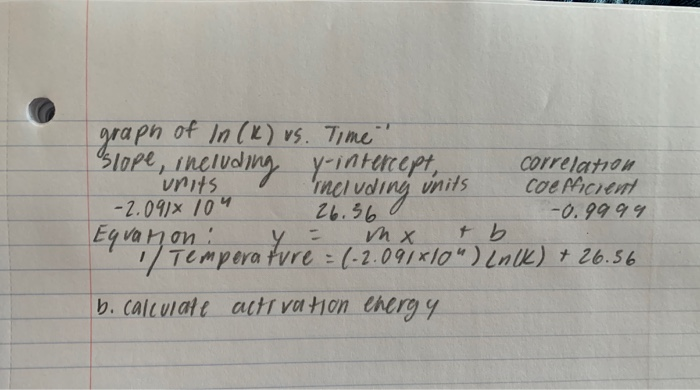 graph of ln(k) vs. Time⁻¹
slope, including y-intercept, correlation
units including units coefficient
-2.091x 10⁴ 26.56 -0.9999
Equation: y = mx + b
1/Temperature = (-2.091x10⁴) Ln(k) + 26.56
b. calculate activation energy